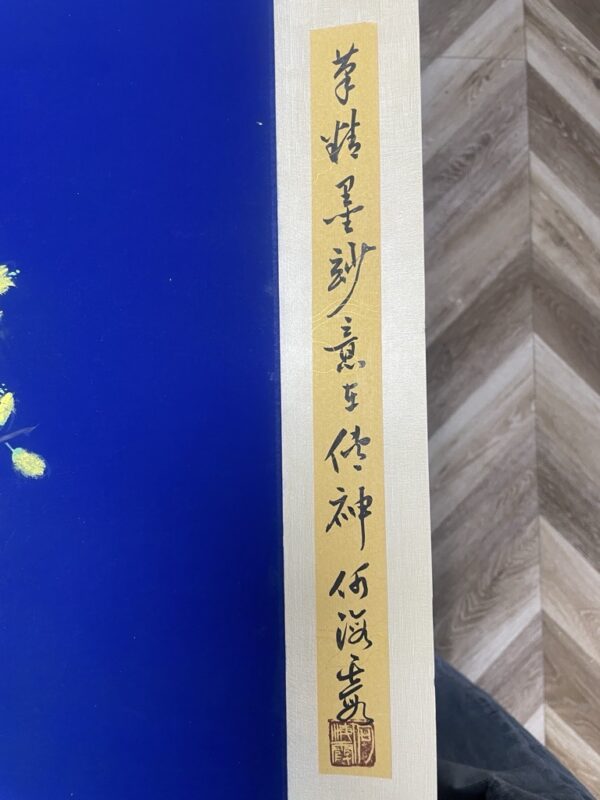 筆精墨妙意在傳神 何海霞